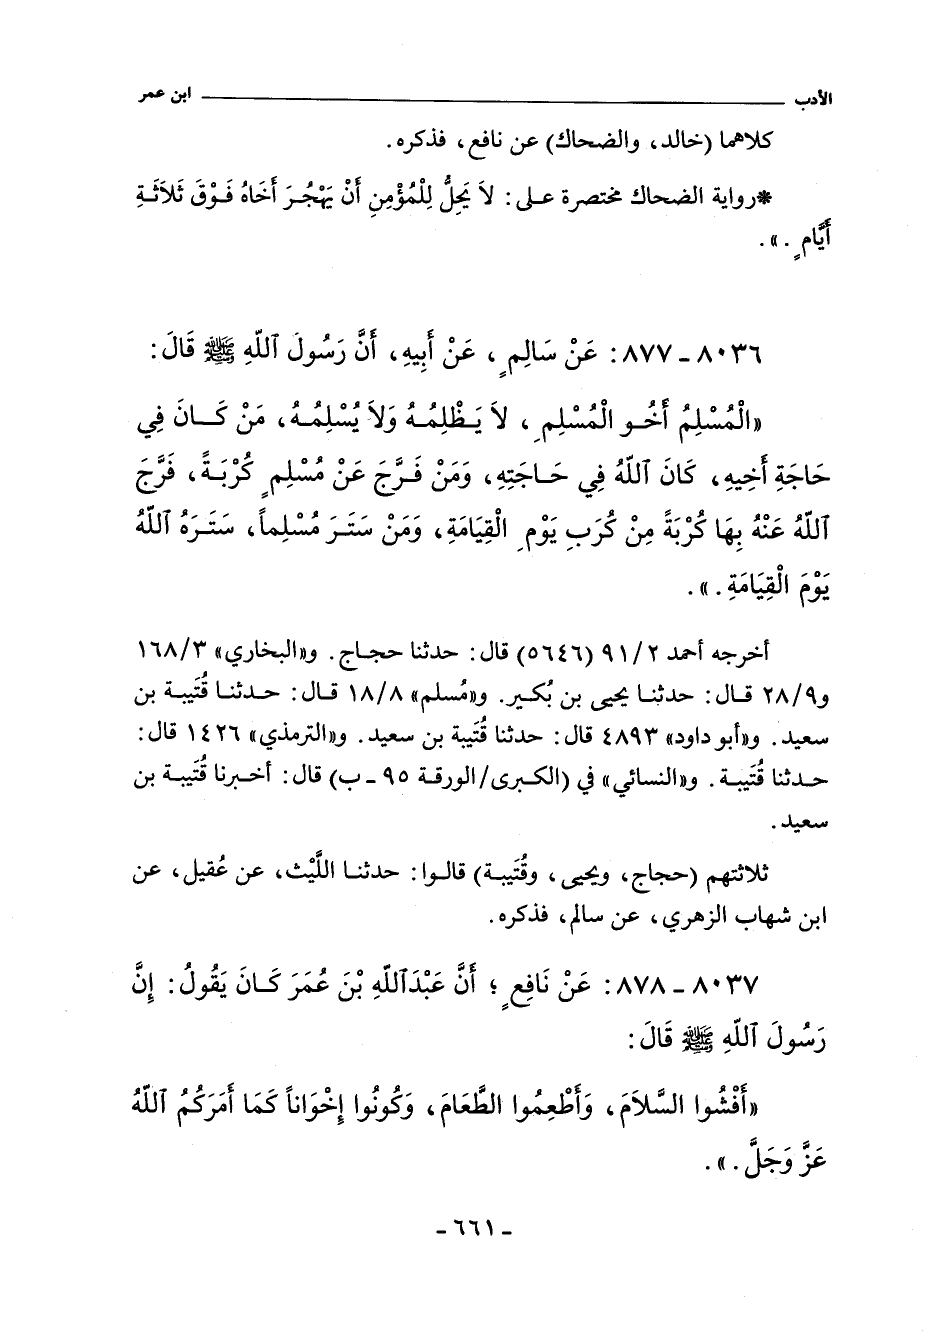 الأدب ابن عمر
كلاهما (خالد، والضحاك) عن نافع، فذكره.
*رواية الضحاك مختصرة على: لاَ يَحِلُّ لِلْمُؤْمِنِ أَنْ يَهْجُرَ أَخَاهُ فَوْقَ ثَلاَثَةِ
أَيَّامٍ.».
٨٠٣٦ - ٨٧٧: عَنْ سَالِمٍ، عَنْ أَبِيهِ، أَنَّ رَسُولَ ٱللّهِ ﷺ قَالَ:
«الْمُسْلِمُ أَخُو الْمُسْلِمِ، لاَ يَظْلِمُهُ وَلاَ يُسْلِمُهُ، مَنْ كَانَ فِي
حَاجَةِ أَخِيهِ، كَانَ ٱللّهُ فِي حَاجَتِهِ، وَمَنْ فَرَّجَ عَنْ مُسْلِمٍ كُرْبَةً، فَرَّجَ
ٱللّهُ عَنْهُ بِهَا كُرْبَةً مِنْ كُرَبِ يَوْمِ الْقِيَامَةِ، وَمَنْ سَتَرَ مُسْلِماً، سَتَرَهُ ٱللّهُ
يَوْمَ الْقِيَامَةِ.».
أخرجه أحمد ٩١/٢ (٥٦٤٦) قال: حدثنا حجاج. و«البخاري» ١٦٨/٣
و٢٨/٩ قال: حدثنا يحيى بن بُكير. و«مُسلم» ١٨/٨ قال: حدثنا قُتَيبة بن
سعيد. و«أبو داود» ٤٨٩٣ قال: حدثنا قُتَيبة بن سعيد. و«الترمذي» ١٤٢٦ قال:
حدثنا قُتَيبة. و«النسائي» في (الكبرى/الورقة ٩٥ - ب) قال: أخبرنا قُتَيبة بن
سعيد.
ثلاثتهم (حجاج، ويحيى، وقُتَيبة) قالوا: حدثنا اللَّيْث، عن عُقيل، عن
ابن شهاب الزهري، عن سالم، فذكره.
٨٠٣٧ - ٨٧٨: عَنْ نَافِعٍ؛ أَنَّ عَبْدَٱللّهِ بْنَ عُمَرَ كَانَ يَقُولُ: إِنَّ
رَسُولَ ٱللّهِ ﷺ قَالَ:
«أَفْشُوا السَّلاَمَ، وَأَطْعِمُوا الطَّعَامَ، وَكُونُوا إِخْوَاناً كَمَا أَمَرَكُمُ ٱللّهُ
عَزَّ وَجَلَّ.».
- ٦٦١ -